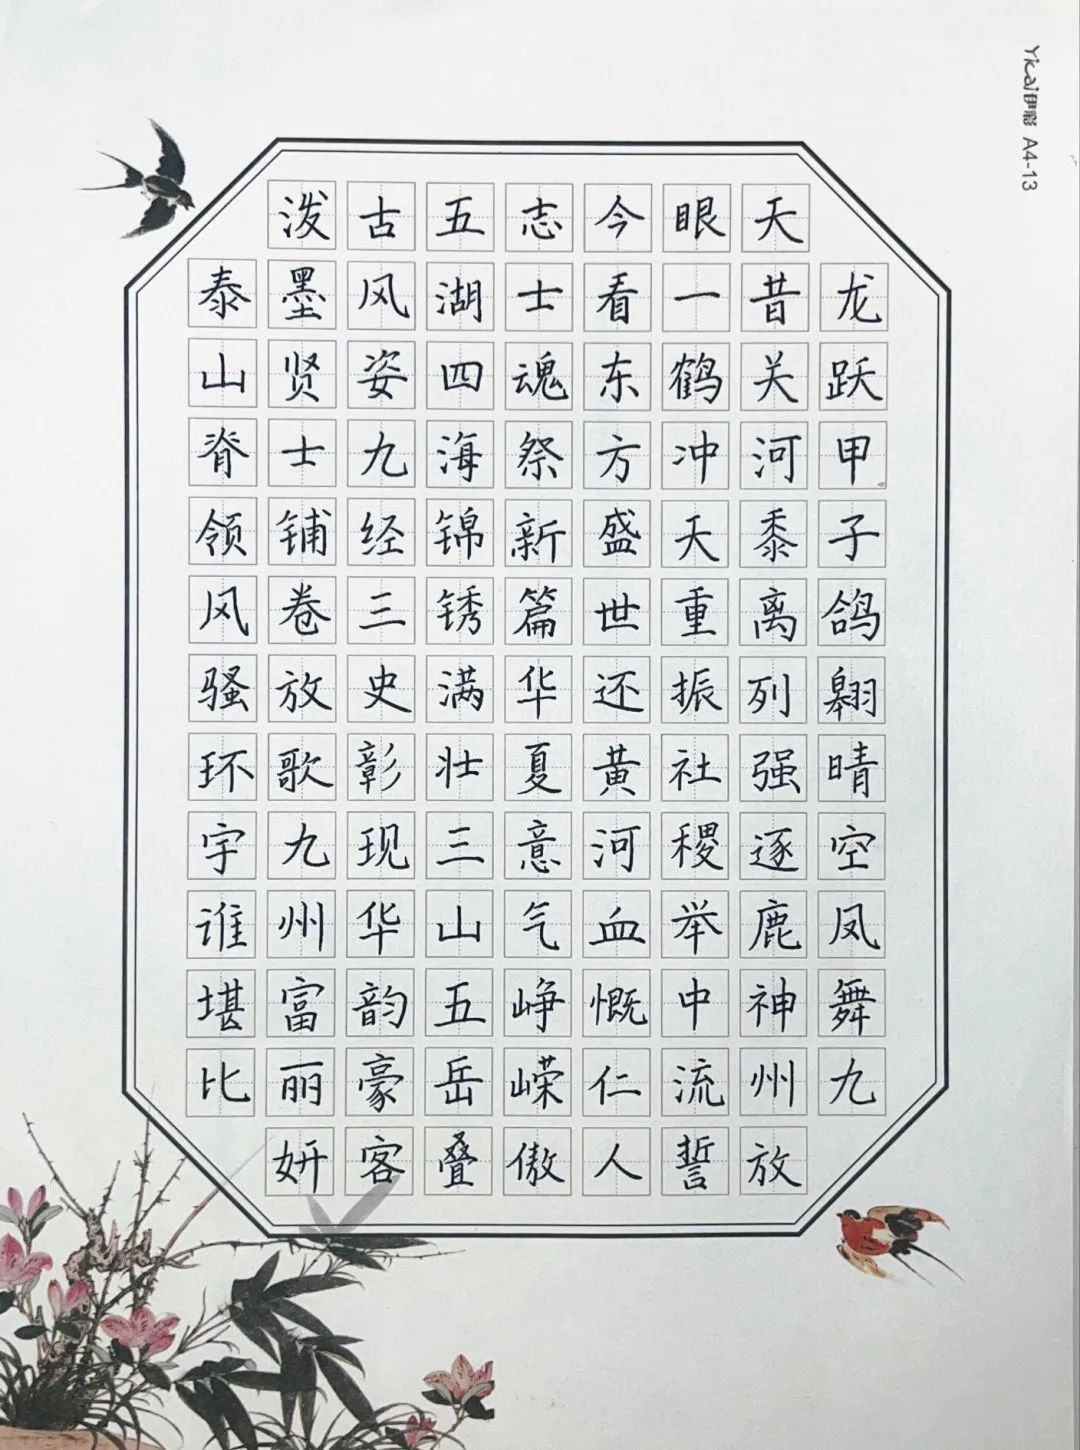 龙跃甲子鸽翱晴空凤舞九
天昔关河黍离列强逐鹿神州放
眼一鹤冲天重振社稷举中流誓
今看东方盛世还黄河血慨仁人
志士魂祭新篇华夏意气峥嵘傲
五湖四海锦绣满壮三山五岳叠
古风姿九经三史彰现华韵豪客
泼墨贤士铺卷放歌九州富丽妍
泰山脊领风骚环宇谁堪比
Yicai伊彩 A4-13